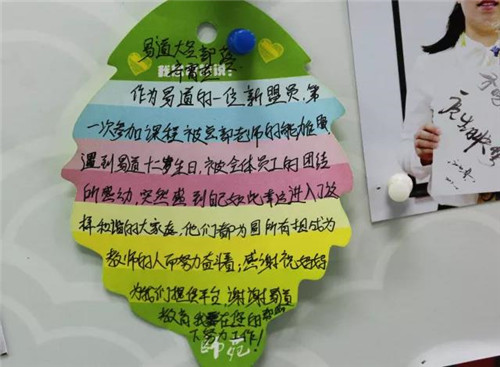 蜀道大足部落
我有话要说:
作为蜀道的一位新盟员,第
一次参加课程被总部老师的能量
遇到蜀道十二岁生日,被全体员工的团结
所感动,突然感到自己如此幸运进入了这
样和谐的大家庭,他们都为圆所有想成为
教师的人而努力奋斗着;感谢祝妈妈
为我们提供平台,谢谢蜀道
教育我要在您的
下努力工作!
师苑